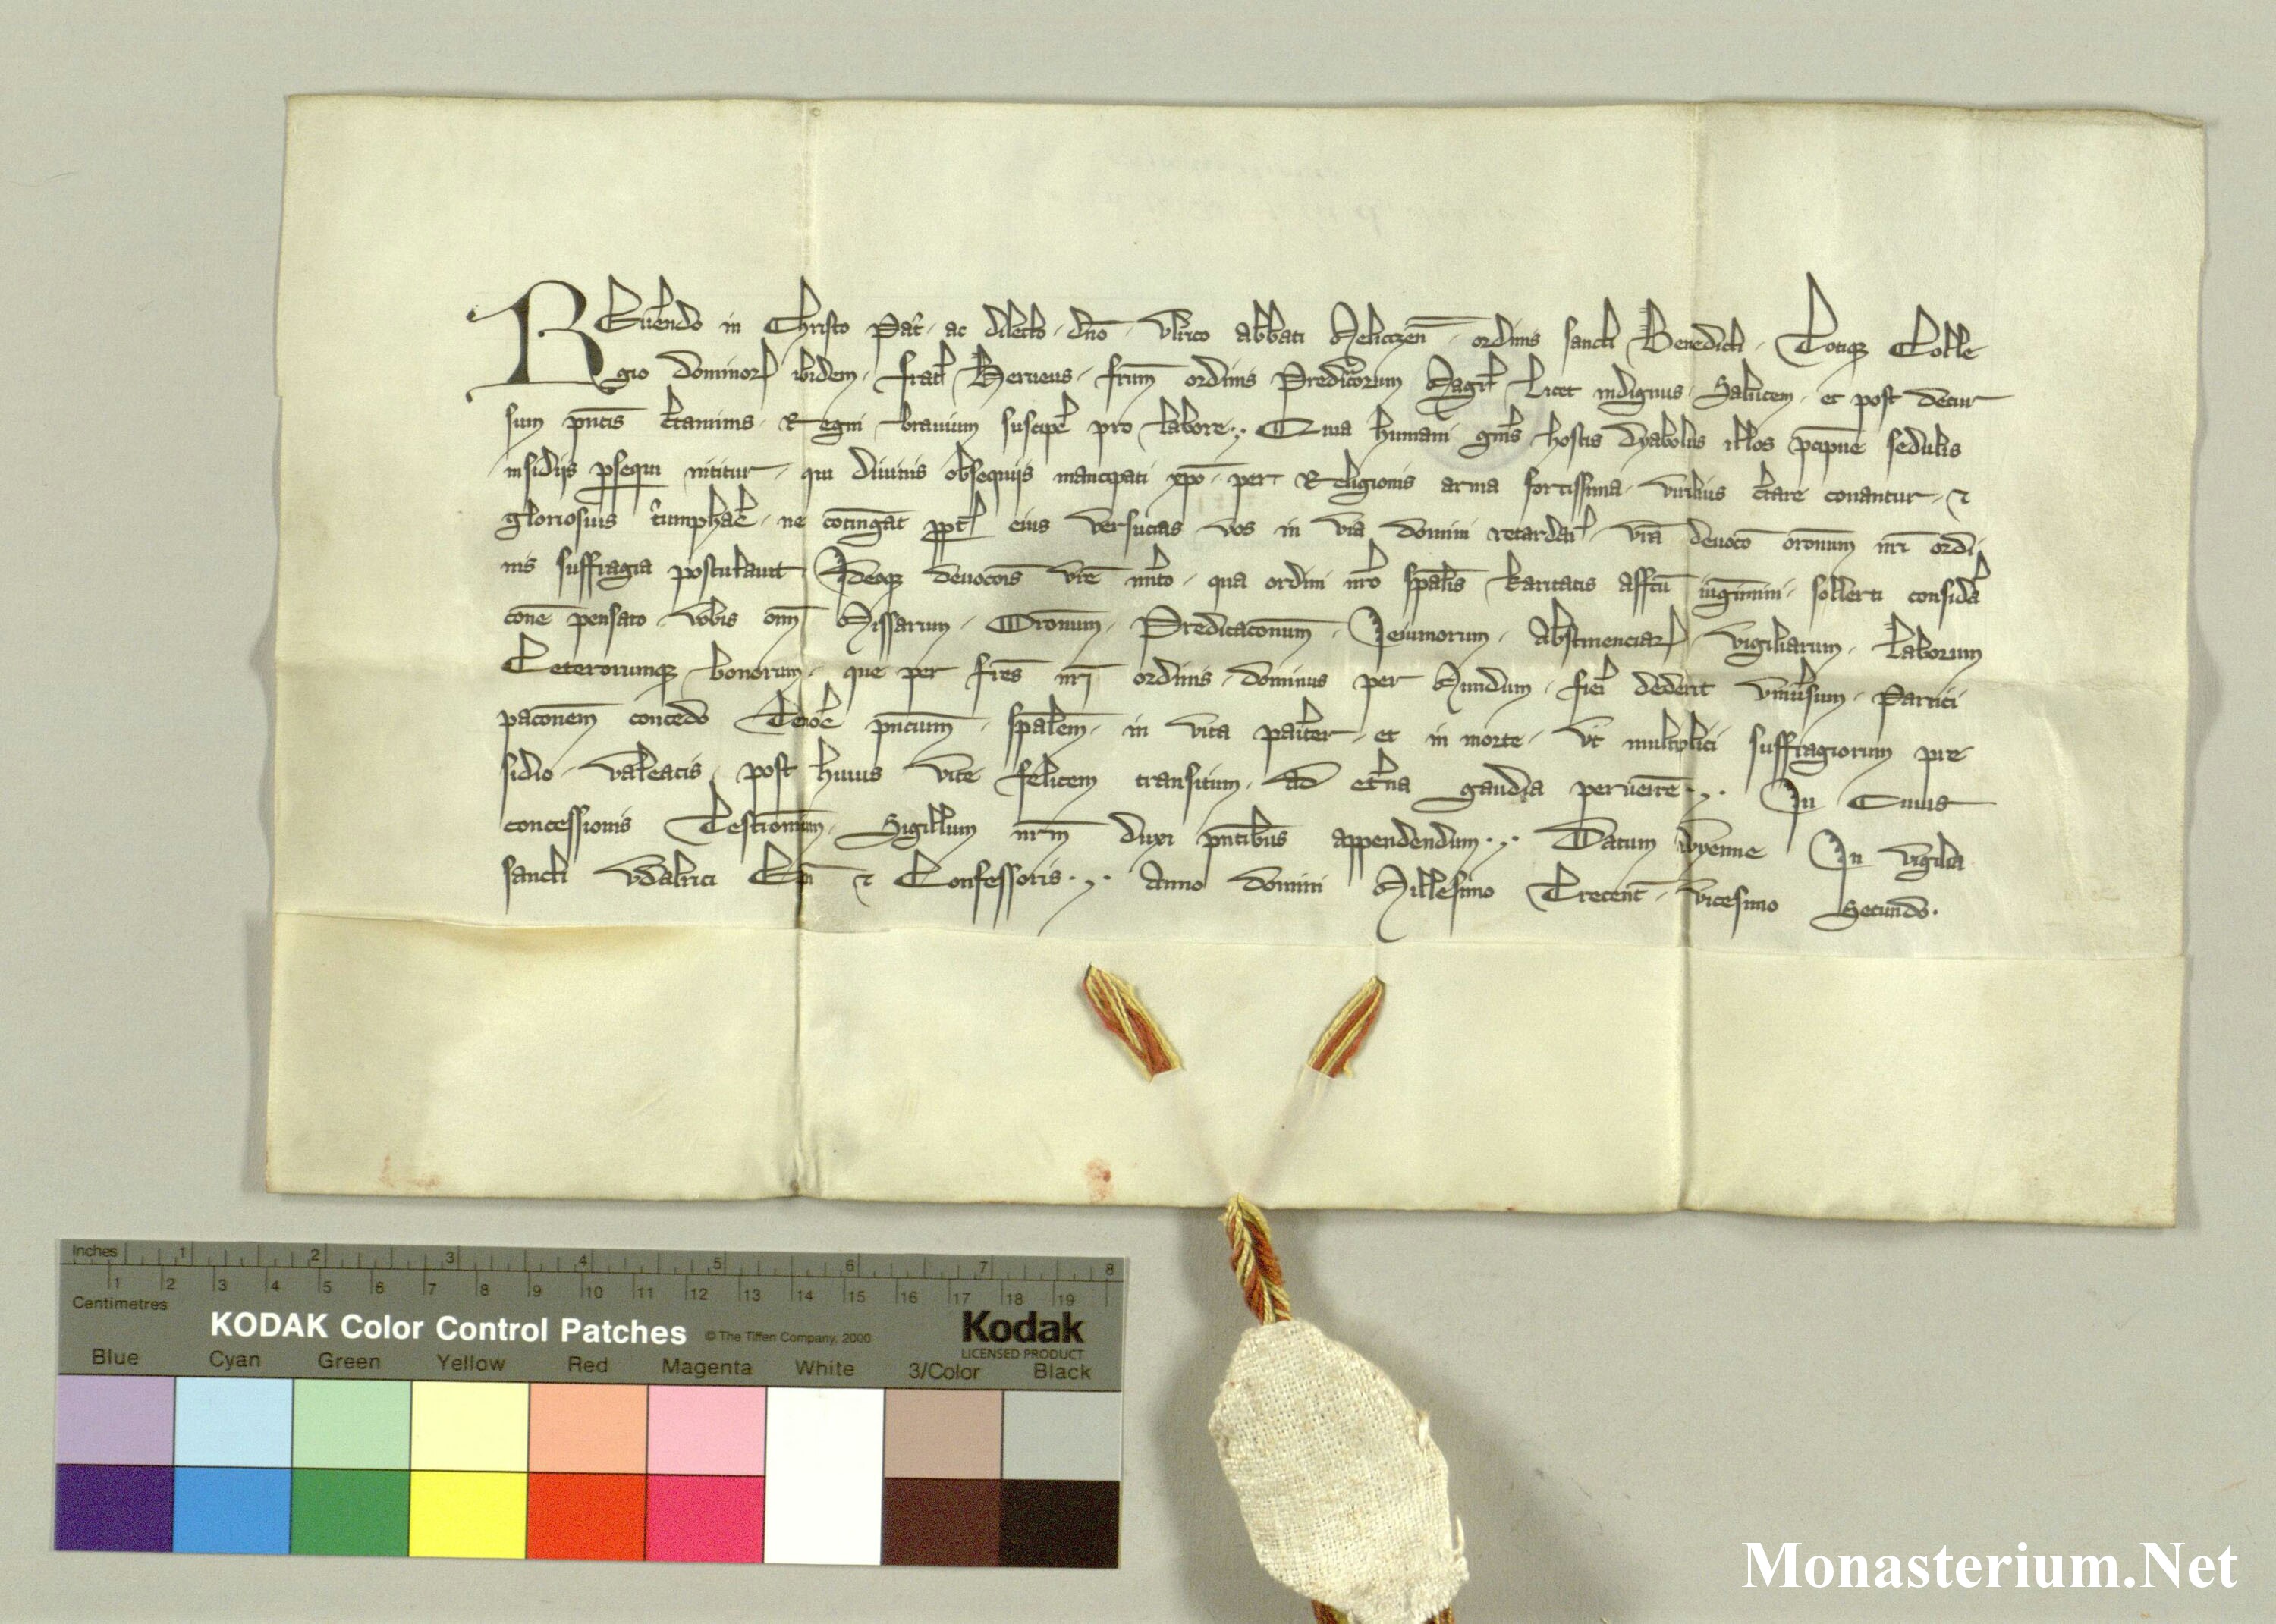 REuerendo in Christo Patri · ac dilecto · dno · Vlrico abbati Meliczen̄ · ordinis sancti Benedicti · Totiqꝫ Colle
gio dominoꝝ ibidem · frater Herueus · frm̄ ordinis Predicatorum Magr̄ licet indignus · Salutem · et post decur
sum pn̄tis c̄taminis · Regni brauium suscipe᷑ pro labore ·,· Quia humani gn̄is hostis dyabolus illos p̄cipue sedulis
insidijs ꝑsequi nititur · qui diuinis obsequijs mancipati xp̄o · per Religionis arma fortissima · viribus c̄tare conantur · ⁊
gloriosius t'umphare · ne cōtingat ꝓpt̄ eius versucias vos in via domini retardari · vr̄a deuoco oronum nr̄i ordi
nis suffragia postulauit Ideoqꝫ deuocois vr̄e m̄ito · qua ordini nr̄o sp̄alis karitatis affc̄u iūgimini · sollerti consid̄a
cone pensato · vobis om̄ Missarum · Oronum · Predicaconum · Ieiuniorum · Abstinenciaꝝ · vigiliarum · laborum
Ceterorumqꝫ bonorum · que per fr̄es nr̄i ordinis · dominus per Mundum · fieri dederit vniu̓sum · Partici
paconem concedo Tenore pn̄cium · sp̄alem · in vita parit̄er · et in morte · vt multiplici suffragiorum pre
sidio · valeatis · post huius vite felicem transitum · ad et̄na gaudia peruenire ·,· In Cuius
concessionis Testimonium · Sigillum nr̄m duxi pn̄tibus appendendum ·,· Datum wyenne In vigilia
sancti vdalrici Ep̄i ⁊ Confessoris ·,· Anno domini Millesimo Trecent̄ · vicesimo Secundo ·
Inches 1 2 3 4 5 6 7 8
1 2 3 4 5 6 7 8 9 10 11 12 13 14 15 16 17 18 19
Centimetres
KODAK Color Control Patches © The Tiffen Company, 2000 Kodak
LICENSED PRODUCT
Blue Cyan Green Yellow Red Magenta White 3/Color Black
Monasterium.Net